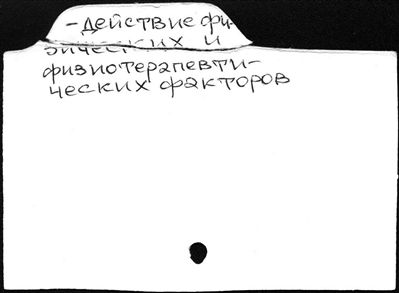 -действие фи-
зических и
физиотерапевти-
ческих факторов